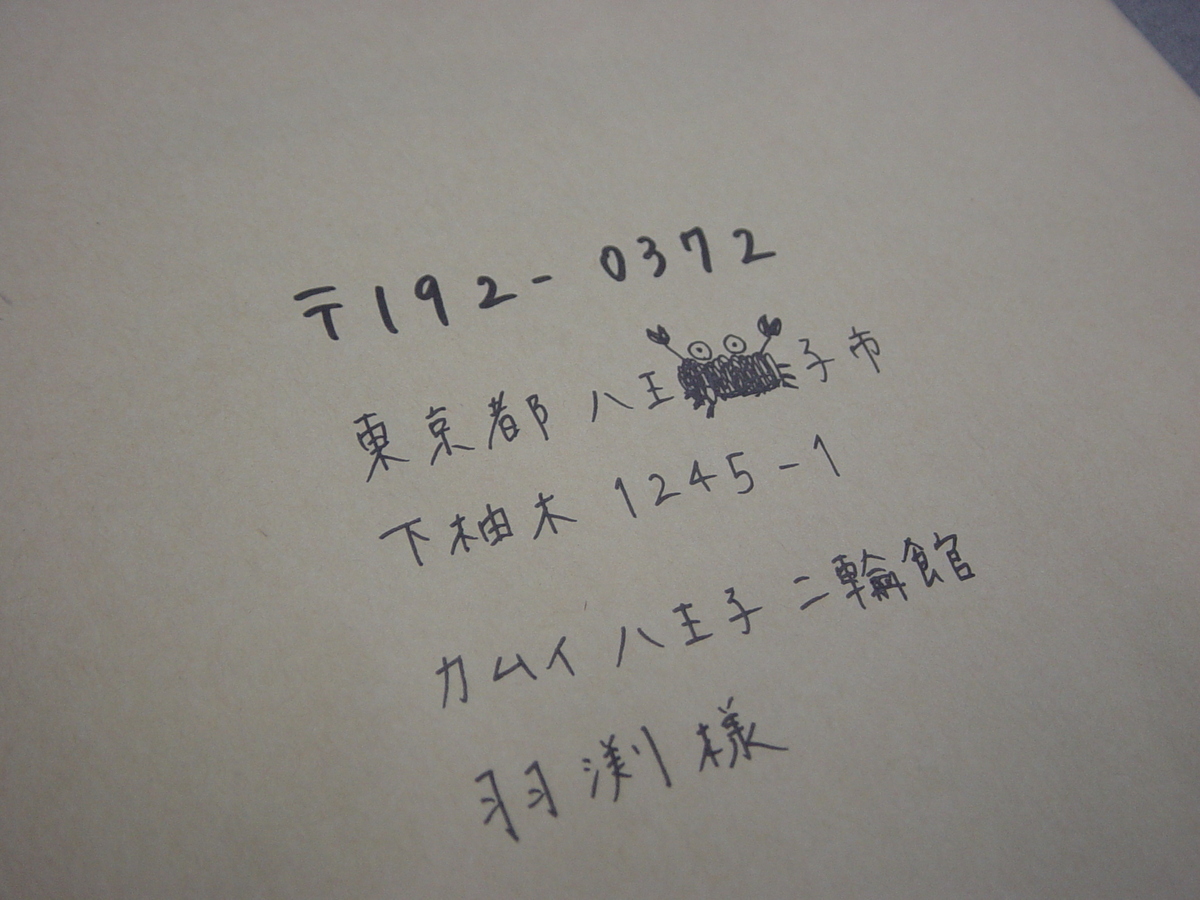 〒192-0372
東京都 八王子市
下柚木 1245-1
カムイ 八王子 二輪館
羽渕 様